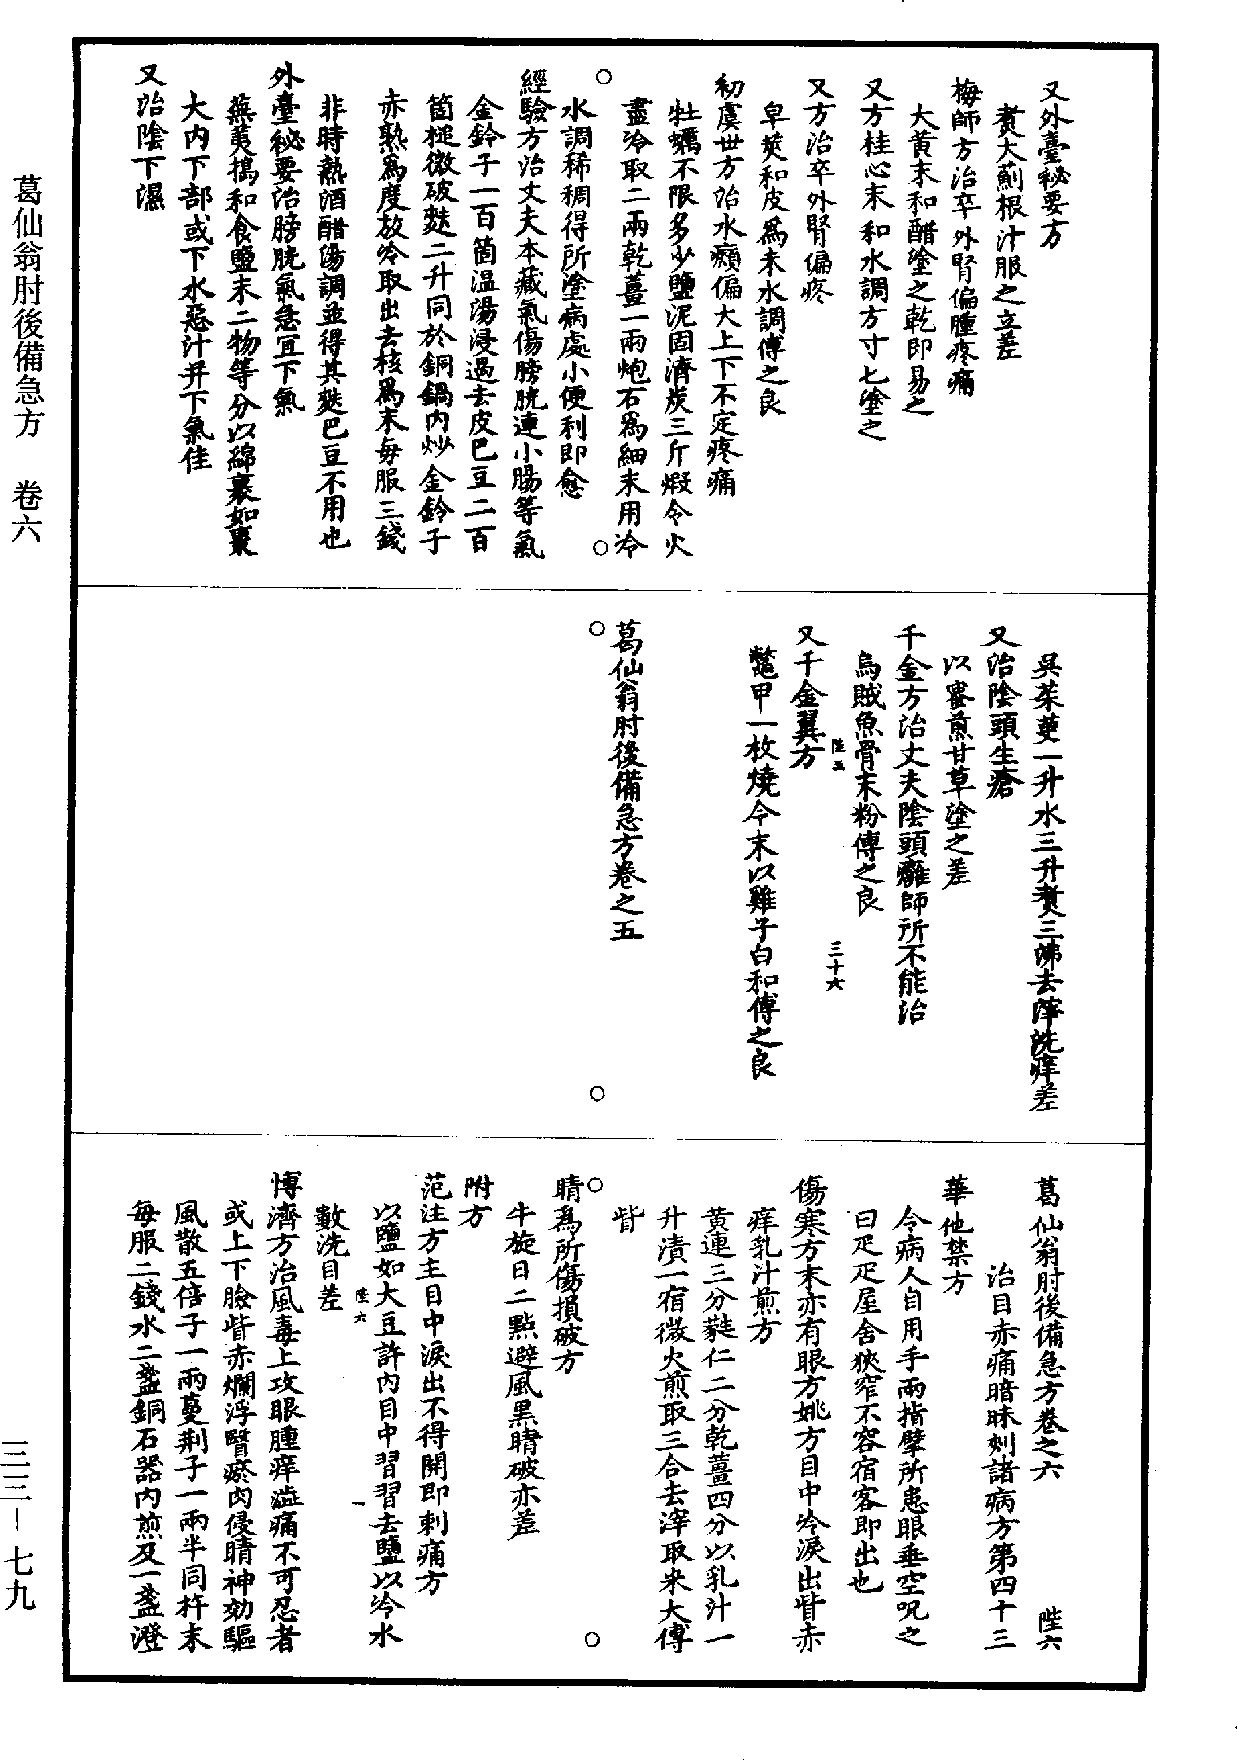 又外臺祕要方
煑大薊根汁服之立差
梅師方治卒外腎偏腫疼痛
大黄末和醋塗之乾即易之
又方桂心末和水調方寸匕塗之
又方治卒外腎偏疼
皁莢和皮爲末水調傅之良
初虞世方治水癩偏大上下不定疼痛
牡蠣不限多少鹽泥固濟炭三斤煅令火
盡冷取二兩乾薑一兩炮右爲細末用冷
水調稀稠得所塗病處小便利即愈
經驗方治丈夫本藏氣傷膀胱連小腸等氣
金鈴子一百箇温湯浸過去皮巴豆二百
箇槌微破麩二升同於銅鍋内炒金鈴子
赤熟爲度放冷取出去核爲末每服三錢
非時熱酒醋湯調並得其麩巴豆不用也
外臺祕要治膀胱氣急宜下氣
蕪荑擣和食鹽末二物等分以綿裹如棗
大内下部或下水惡汁并下氣佳
又治陰下濕
吳茱萸一升水三升煑三沸去滓洗痒差
又治陰頭生瘡
以蜜煎甘草塗之差
千金方治丈夫陰頭癰師所不能治
烏賊魚骨末粉傅之良
陞五
三十六
又千金翼方
鼈甲一枚燒令末以雞子白和傅之良
葛仙翁肘後備急方卷之五
葛仙翁肘後備急方卷之六
陞六
治目赤痛暗昧刺諸病方第四十三
華他禁方
令病人自用手兩指擘所患眼垂空呪之
曰疋疋屋舍狹窄不容宿客即出也
傷寒方末亦有眼方姚方目中冷淚出眥赤
痒乳汁煎方
黄連三分蕤仁二分乾薑四分以乳汁一
升漬一宿微火煎取三合去滓取米大傅
眥
睛爲所傷損破方
牛旋日二點避風黒睛破亦差
附方
范注方主目中淚出不得開即刺痛方
以鹽如大豆許内目中習習去鹽以冷水
數洗目差
陞六
一
博濟方治風毒上攻眼腫痒澁痛不可忍者
或上下瞼眥赤爛浮瞖瘀肉侵睛神効驅
風散五倍子一兩蔓荆子一兩半同杵末
每服二錢水二盞銅石器内煎及一盞澄
葛仙翁肘後備急方 卷六
三三—七九